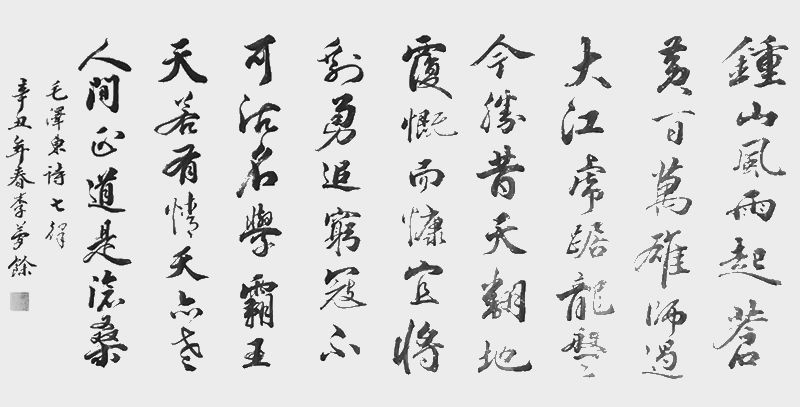 鍾山風雨起蒼
黃百萬雄師過
大江虎踞龍盤
今勝昔天翻地
覆慨而慷宜將
剩勇追窮寇不
可沽名學霸王
天若有情天亦老
人間正道是滄桑
毛澤東詩七律
辛丑年春李夢餘